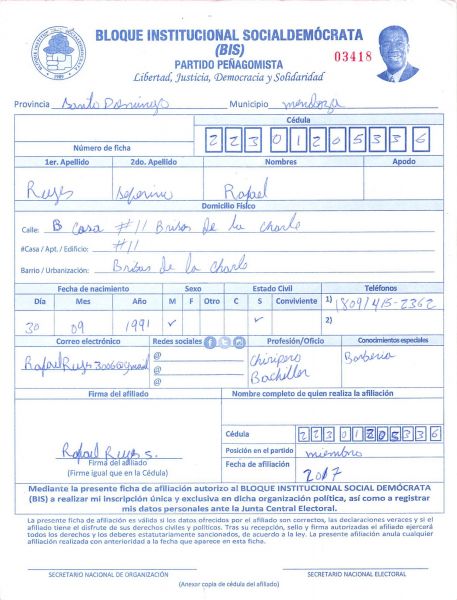 BLOQUE INSTITUCIONAL SOCIALDEMÓCRATA
(BIS)
PARTIDO PEÑAGOMISTA
Libertad, Justicia, Democracia y Solidaridad
03418
Provincia Santo Domingo Municipio mendoza
Cédula
Número de ficha 22301205336
1er. Apellido 2do. Apellido Nombres Apodo
Reyes Severino Rafael
Domicilio Físico
Calle: B Casa #11 Brisas De la Charle
#Casa / Apt. / Edificio: #11
Barrio / Urbanización: Brisas De la Charle
Fecha de nacimiento Sexo Estado Civil Teléfonos
Día Mes Año M F Otro C S Conviviente 1) 1809/415-2362
30 09 1991 ✓ ✓ 2)
Correo electrónico Redes sociales Profesión/Oficio Conocimientos especiales
RafaelReyes3006@gmail @ Chiripero Barberia
@ Bachiller
@
Firma del afiliado Nombre completo de quien realiza la afiliación
Cédula 22301205336
Rafael Reyes S. Posición en el partido miembro
Firma del afiliado Fecha de afiliación 2017
(Firme igual que en la Cédula)
Mediante la presente ficha de afiliación autorizo al BLOQUE INSTITUCIONAL SOCIAL DEMÓCRATA
(BIS) a realizar mi inscripción única y exclusiva en dicha organización política, así como a registrar
mis datos personales ante la Junta Central Electoral.
La presente ficha de afiliación es válida si los datos ofrecidos por el afiliado son correctos, las declaraciones veraces y si el
afiliado tiene el disfrute de sus derechos civiles y políticos. Tras su recepción, sello y firma autorizadas el afiliado ejercerá
todos los derechos y los deberes estatutariamente sancionados, de acuerdo a la ley. La presente afiliación anula cualquier
afiliación realizada con anterioridad a la fecha que aparece en esta ficha.
SECRETARIO NACIONAL DE ORGANIZACIÓN SECRETARIO NACIONAL ELECTORAL
(Anexar copia de cédula del afiliado)